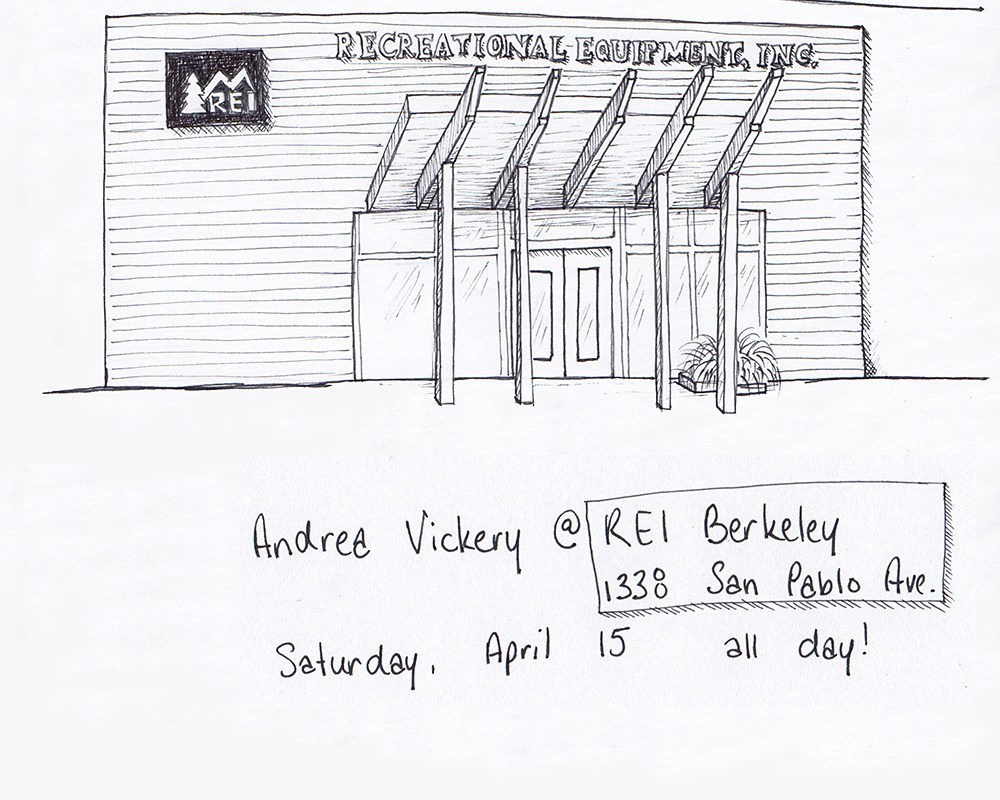 RECREATIONAL EQUIPMENT, INC.
REI
Andrea Vickery @ REI Berkeley
1338 San Pablo Ave.
Saturday, April 15 all day!